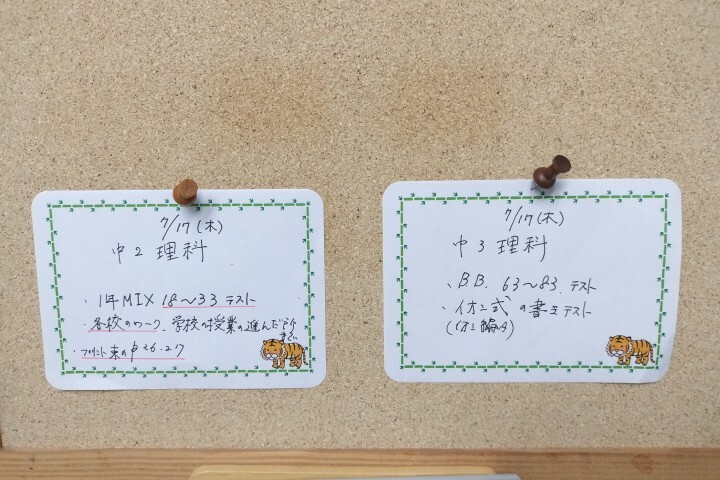 7/17(木)
中2 理科
・1年MIX 18〜33 テスト
・各校のワーク、学校の授業の進んだ所まで
・プリント束のP26.27
7/17(木)
中3 理科
・B.B. 63〜83. テスト
・イオン式の書き テスト
(イオン編